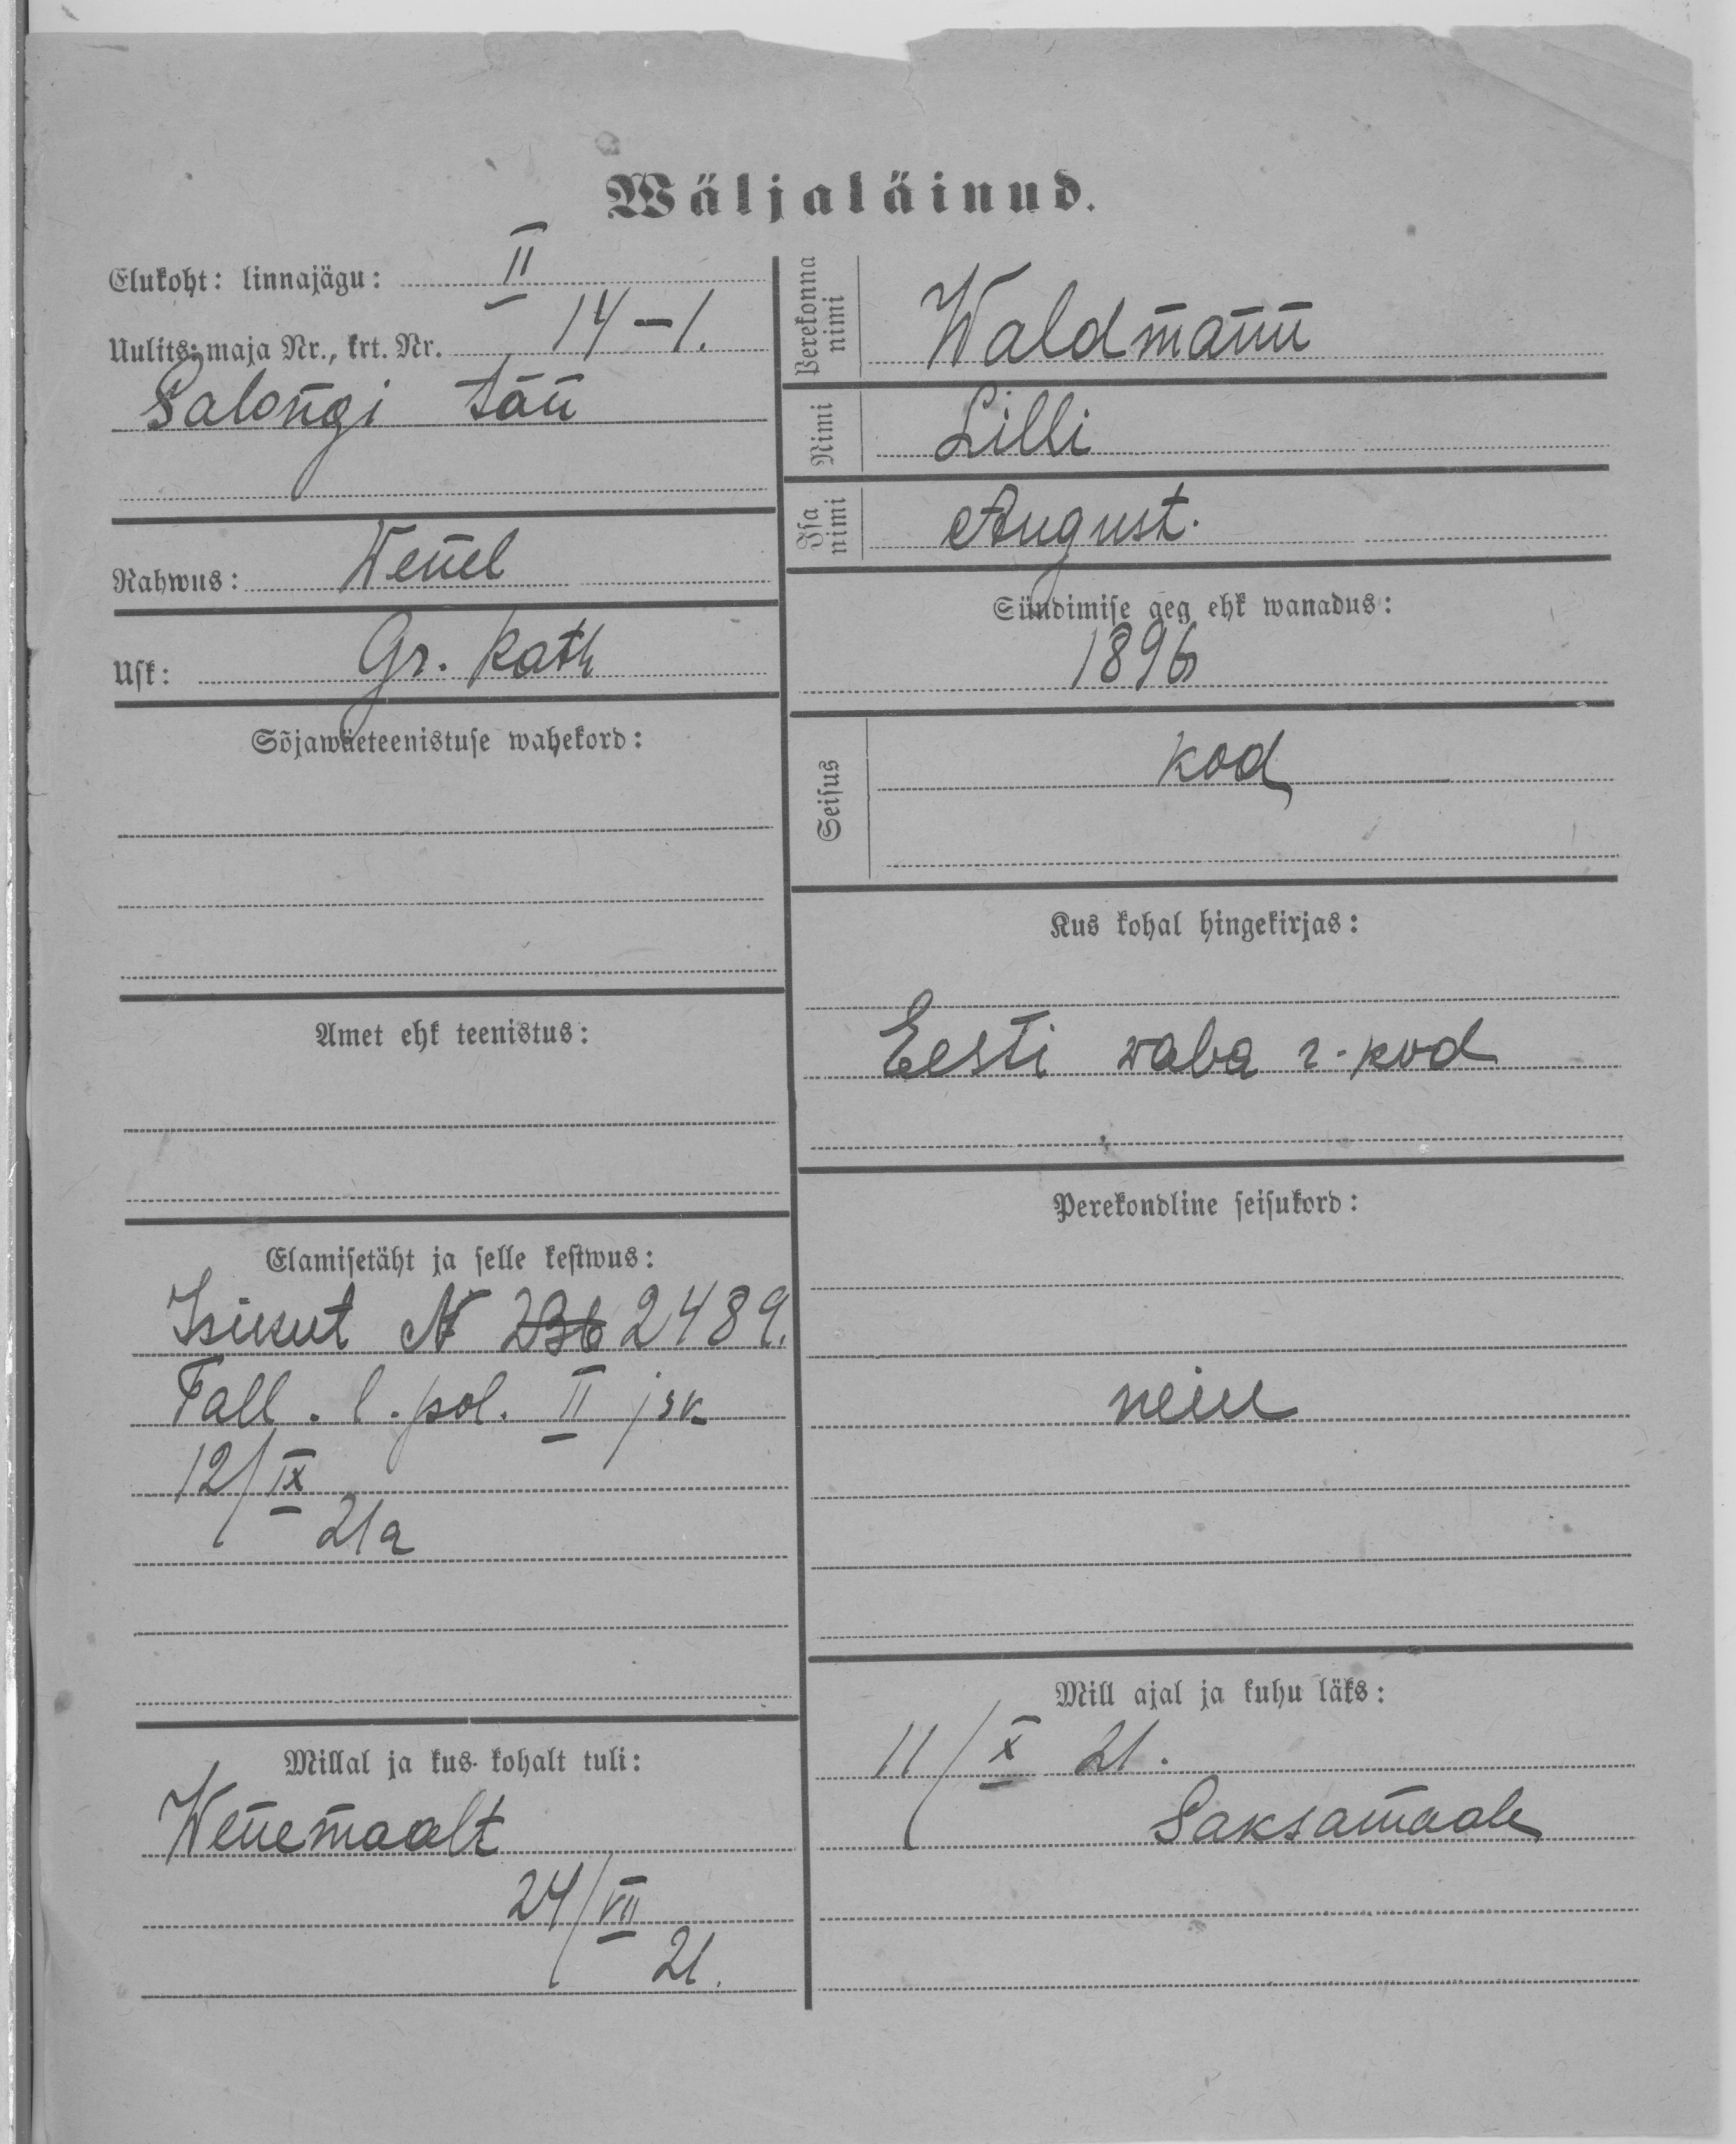 Wäljaläinud.
Elukoht: linnajägu: II
Uulits: maja Nr., krt. Nr. 14–1.
Salongi tän
Rahwus: Wenel
Usk: Gr. Kath
Sõjawäeteenistuse wahekord:
Amet ehk teenistus:
Elamisetäht ja selle kestwus:
Isikut № 236 2489.
Tall. l. pol. II jsk
12/IX
21 a
Millal ja kus kohalt tuli:
Wenemaalt
24/VII
21.
Perekonna nimi Waldmann
Nimi Lilli
Isa nimi August.
Sündimise aeg ehk wanadus:
1896
Seisus kod
Kus kohal hingekirjas:
Eesti waba r. kod
Perekondline seisukord:
neiu
Mill ajal ja kuhu läks:
11/X 21.
Saksamaale